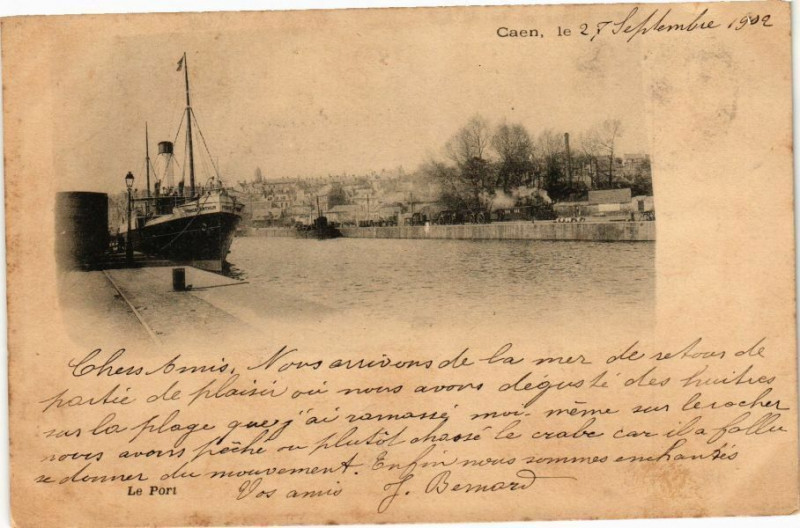 Caen, le 27 Septembre 1902
Chers Amis, Nous arrivons de la mer de retour de
partie de plaisir où nous avons dégusté des huitres
sur la plage que j'ai ramassé moi-même sur le rocher
nous avons pêché ou plutôt chassé le crabe car il a fallu
se donner du mouvement. Enfin nous sommes enchantés
Le Port
Vos amis J. Bernard